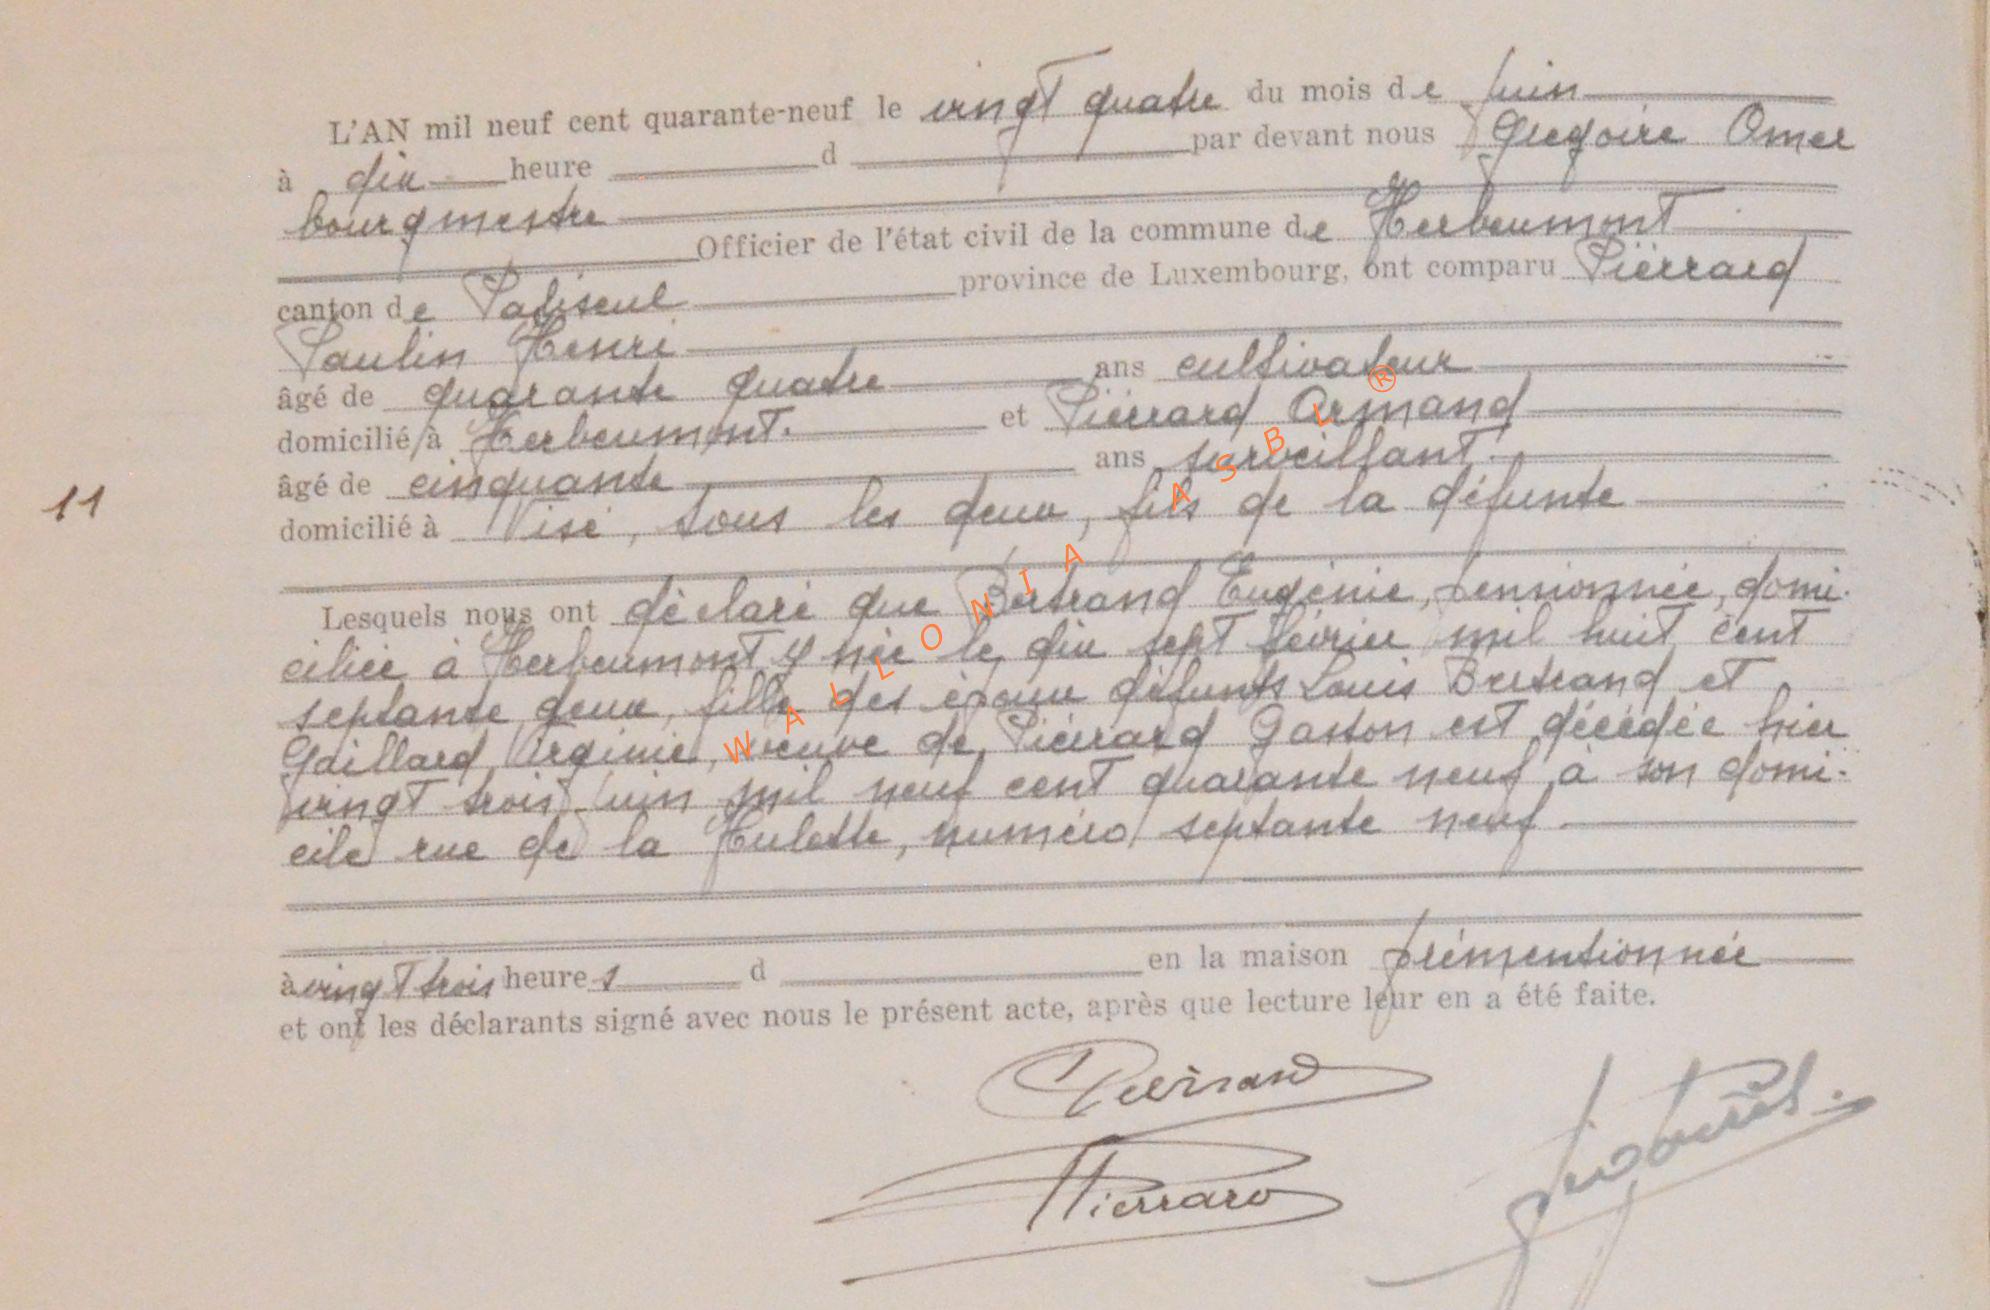 L'AN mil neuf cent quarante-neuf le vingt quatre du mois de juin
à dix heure d par devant nous Gregoire Omer
bourgmestre
Officier de l'état civil de la commune de Herbeumont
canton de Paliseul province de Luxembourg, ont comparu Piérrard
Paulin Henri
âgé de quarante quatre ans cultivateur
domicilié à Herbeumont. et Piérrard Armand
âgé de cinquante ans surveillant.
11
domicilié à Visé, tous les deux, fils de la défunte
Lesquels nous ont déclaré que Bertrand Eugénie, pensionnée, domi-
ciliée à Herbeumont y née le dix sept février mil huit cent
septante deux, fille des époux défunts Louis Bertrand et
Gaillard Virginie, veuve de Piérrard Gaston est décédée hier
vingt trois juin mil neuf cent quarante neuf à son domi-
cile rue de la Hulette, numéro septante neuf
à vingt trois heures d en la maison prémentionnée
et ont les déclarants signé avec nous le présent acte, après que lecture leur en a été faite.
Pierrard
Pierrard
WALLONIA ASBL ®